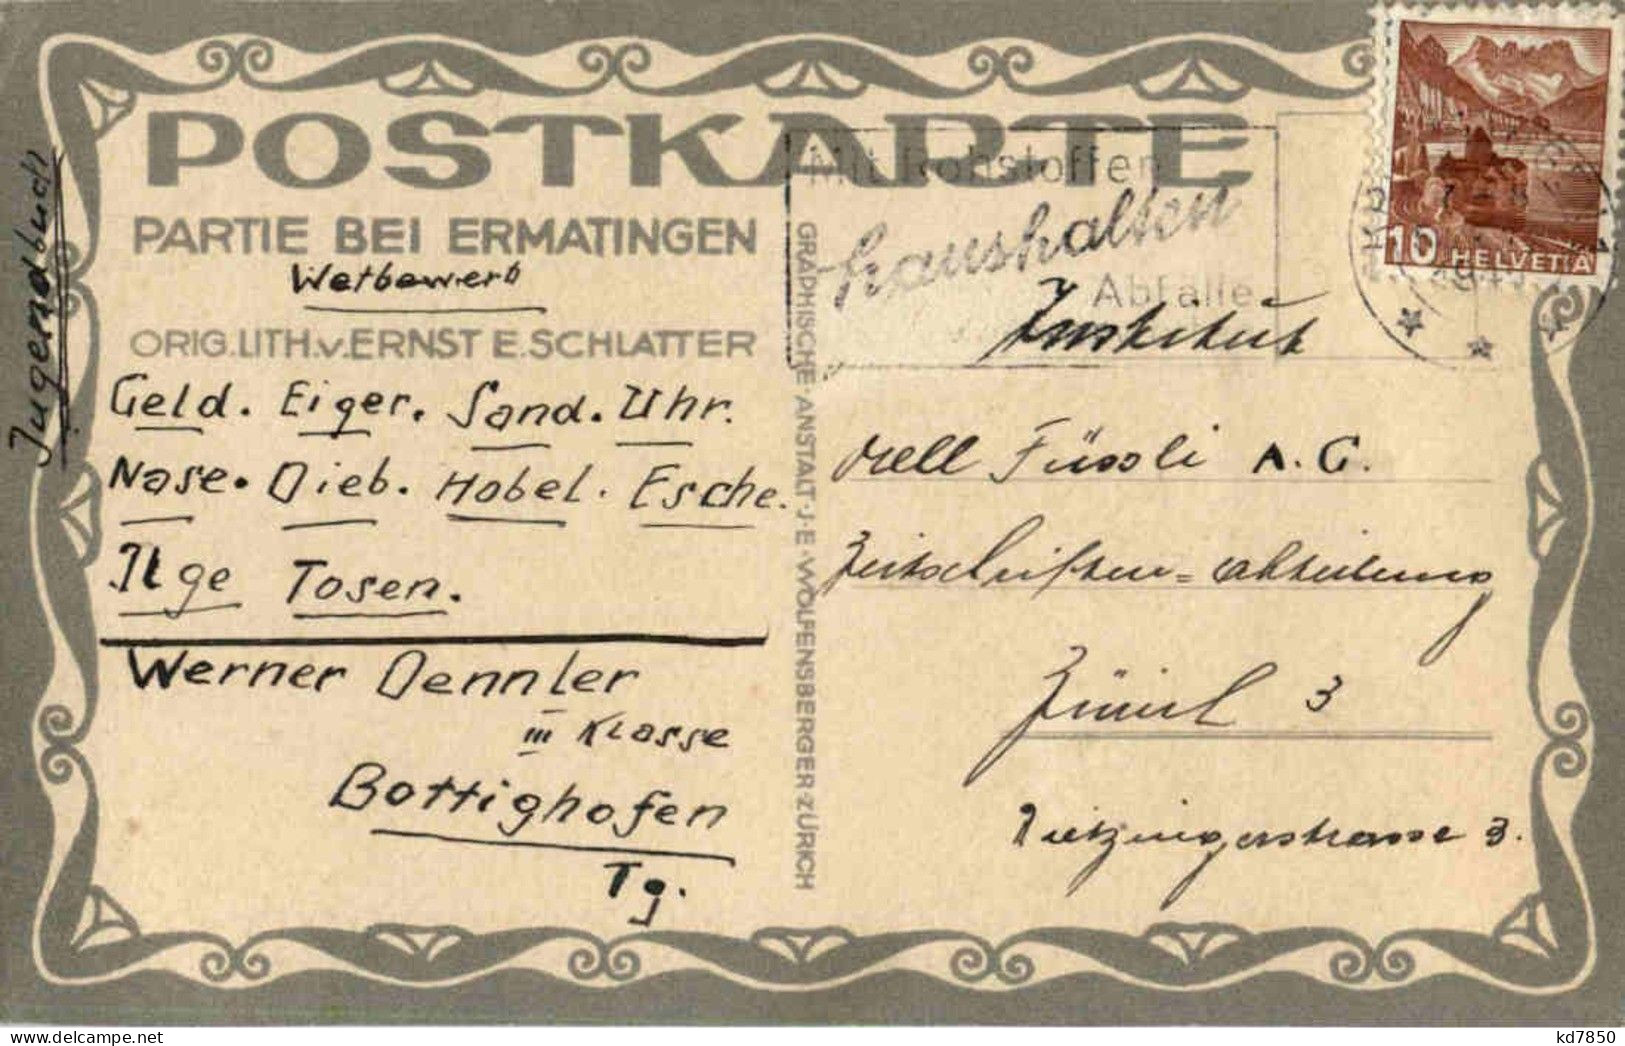 POSTKARTE
PARTIE BEI ERMATINGEN
Wetbewerb
ORIG. LITH. v. ERNST E. SCHLATTER
Geld. Eiger. Sand. Uhr.
Nase. Dieb. Hobel. Esche.
Ilge Tosen.
Werner Dennler
III Klasse
Bottighofen
Tg.
Jugendbuch
GRAPHISCHE ANSTALT·J·E·WOLFENSBERGER·ZÜRICH
Mit Rohstoffen
haushalten
Abfälle
10 HELVETIA
Institut
Orell Füssli A.G.
Zeitschriften=abteilung
Zürich 3
Dietzingerstrasse 3.
kd7850